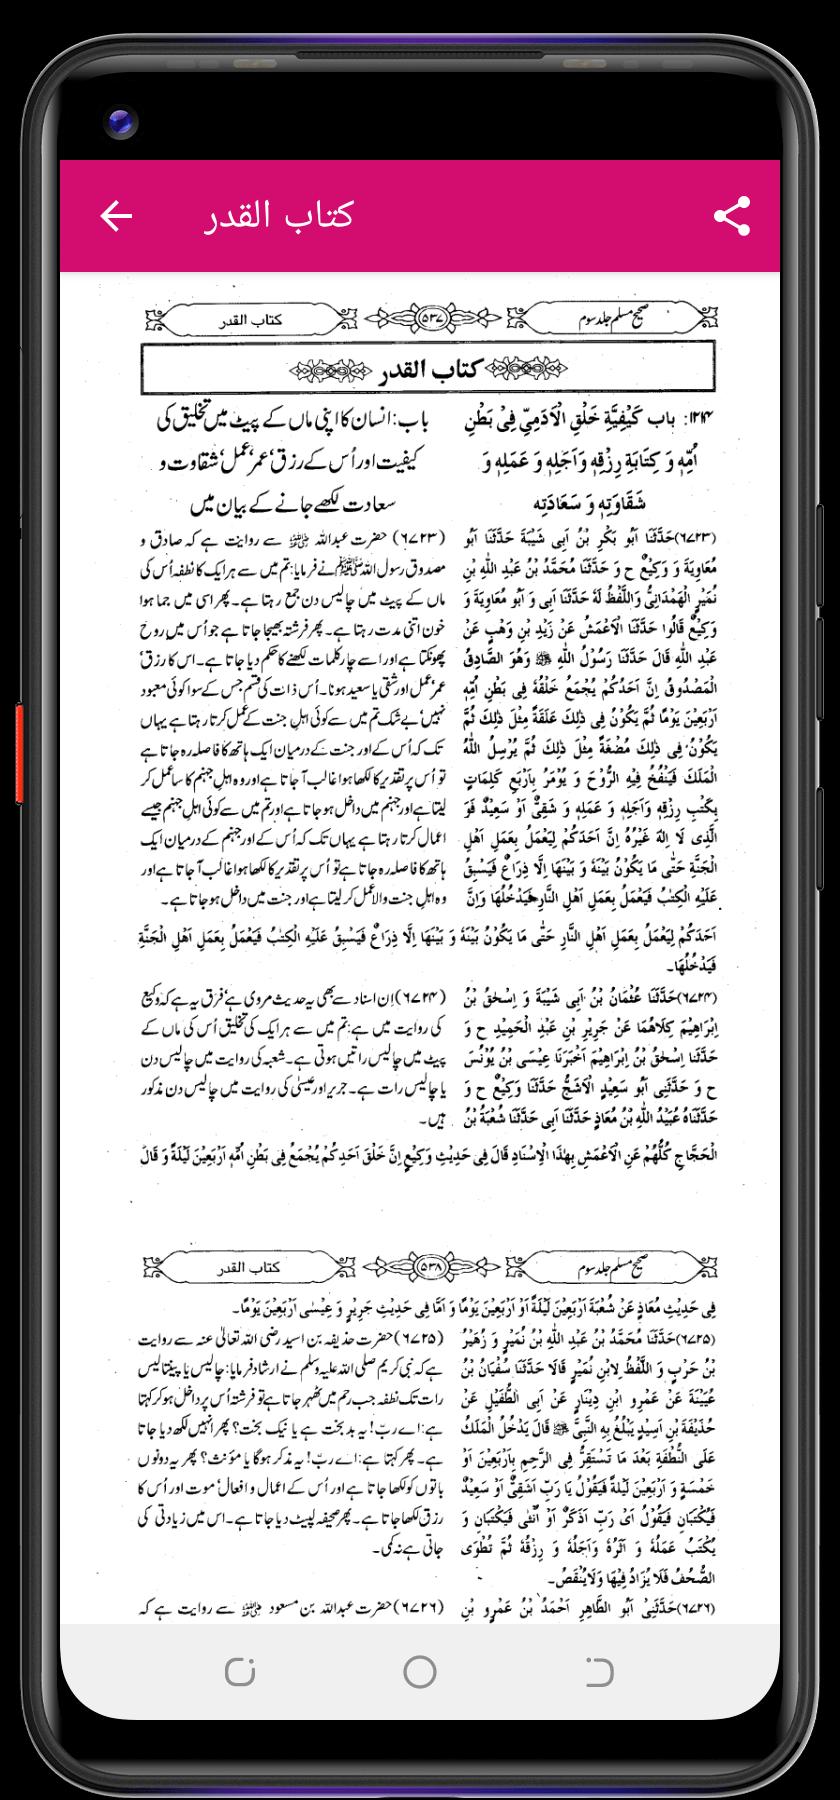 كتاب القدر
صحیح مسلم جلد سوم
۵۳۷
کتاب القدر
كتاب القدر
۱۲۱۴: باب كَيْفِيَّةِ خَلْقِ الْاٰدَمِيِّ فِيْ بَطْنِ
اُمِّهٖ وَ كِتَابَةِ رِزْقِهٖ وَاَجَلِهٖ وَ عَمَلِهٖ وَ
شَقَاوَتِهٖ وَ سَعَادَتِهٖ
باب: انسان کا اپنی ماں کے پیٹ میں تخلیق کی
کیفیت اور اُس کے رزق‘ عمر‘ عمل‘ شقاوت و
سعادت لکھے جانے کے بیان میں
(۶۷۲۳)حَدَّثَنَا اَبُو بَكْرِ بْنُ اَبِى شَيْبَةَ حَدَّثَنَا اَبُو
مُعَاوِيَةَ وَ وَكِيْعٌ ح وَ حَدَّثَنَا مُحَمَّدُ بْنُ عَبْدِ اللّٰهِ بْنِ
نُمَيْرٍ الْهَمْدَانِىُّ وَاللَّفْظُ لَهٗ حَدَّثَنَا اَبِى وَ اَبُو مُعَاوِيَةَ وَ
وَكِيْعٌ قَالُوا حَدَّثَنَا الْاَعْمَشُ عَنْ زَيْدِ بْنِ وَهْبٍ عَنْ
عَبْدِ اللّٰهِ قَالَ حَدَّثَنَا رَسُوْلُ اللّٰهِ ﷺ وَهُوَ الصَّادِقُ
الْمَصْدُوْقُ اِنَّ اَحَدَكُمْ يُجْمَعُ خَلْقُهٗ فِى بَطْنِ اُمِّهٖ
اَرْبَعِيْنَ يَوْمًا ثُمَّ يَكُوْنُ فِى ذٰلِكَ عَلَقَةً مِثْلَ ذٰلِكَ ثُمَّ
يَكُوْنُ فِى ذٰلِكَ مُضْغَةً مِثْلَ ذٰلِكَ ثُمَّ يُرْسِلُ اللّٰهُ
الْمَلَكَ فَيَنْفُخُ فِيْهِ الرُّوْحَ وَ يُوْمَرُ بِاَرْبَعِ كَلِمَاتٍ
بِكَتْبِ رِزْقِهٖ وَاَجَلِهٖ وَ عَمَلِهٖ وَ شَقِىٌّ اَوْ سَعِيْدٌ فَوَ
الَّذِى لَا اِلٰهَ غَيْرُهٗ اِنَّ اَحَدَكُمْ لِيَعْمَلُ بِعَمَلِ اَهْلِ
الْجَنَّةِ حَتّٰى مَا يَكُوْنُ بَيْنَهٗ وَ بَيْنَهَا اِلَّا ذِرَاعٌ فَيَسْبِقُ
عَلَيْهِ الْكِتٰبُ فَيَعْمَلُ بِعَمَلِ اَهْلِ النَّارِ فَيَدْخُلُهَا وَاِنَّ
(۶۷۲۳) حضرت عبداللہ ؓ سے روایت ہے کہ صادق و
مصدوق رسول اللہ ﷺ نے فرمایا: تم میں سے ہر ایک کا نطفہ اُس کی
ماں کے پیٹ میں چالیس دن جمع رہتا ہے۔ پھر اسی میں جما ہوا
خون اتنی مدت رہتا ہے۔ پھر فرشتہ بھیجا جاتا ہے جو اُس میں روح
پھونکتا ہے اور اسے چار کلمات لکھنے کا حکم دیا جاتا ہے۔ اس کا رزق‘
عمر‘ عمل اور شقی یا سعید ہونا۔ اُس ذات کی قسم جس کے سوا کوئی معبود
نہیں‘ بے شک تم میں سے کوئی اہلِ جنت کے عمل کرتا رہتا ہے یہاں
تک کہ اُس کے اور جنت کے درمیان ایک ہاتھ کا فاصلہ رہ جاتا ہے
تو اُس پر تقدیر کا لکھا ہوا غالب آ جاتا ہے اور وہ اہلِ جہنم کا سا عمل کر
لیتا ہے اور جہنم میں داخل ہو جاتا ہے اور تم میں سے کوئی اہلِ جہنم جیسے
اعمال کرتا رہتا ہے یہاں تک کہ اُس کے اور جہنم کے درمیان ایک
ہاتھ کا فاصلہ رہ جاتا ہے تو اُس پر تقدیر کا لکھا ہوا غالب آ جاتا ہے اور
وہ اہلِ جنت والا عمل کر لیتا ہے اور جنت میں داخل ہو جاتا ہے۔
اَحَدَكُمْ لِيَعْمَلُ بِعَمَلِ اَهْلِ النَّارِ حَتّٰى مَا يَكُوْنُ بَيْنَهٗ وَ بَيْنَهَا اِلَّا ذِرَاعٌ فَيَسْبِقُ عَلَيْهِ الْكِتٰبُ فَيَعْمَلُ بِعَمَلِ اَهْلِ الْجَنَّةِ
فَيَدْخُلُهَا۔
(۶۷۲۴)حَدَّثَنَا عُثْمَانُ بْنُ اَبِى شَيْبَةَ وَ اِسْحٰقُ بْنُ
اِبْرَاهِيْمَ كِلَاهُمَا عَنْ جَرِيْرِ بْنِ عَبْدِ الْحَمِيْدِ ح وَ
حَدَّثَنَا اِسْحٰقُ بْنُ اِبْرَاهِيْمَ اَخْبَرَنَا عِيْسَى بْنُ يُوْنُسَ
ح وَ حَدَّثَنِى اَبُو سَعِيْدٍ الْاَشَجُّ حَدَّثَنَا وَكِيْعٌ ح وَ
حَدَّثَنَاهُ عُبَيْدُ اللّٰهِ بْنُ مُعَاذٍ حَدَّثَنَا اَبِى حَدَّثَنَا شُعْبَةُ بْنُ
(۶۷۲۴) اِن اسناد سے بھی یہ حدیث مروی ہے‘ فرق یہ ہے کہ وکیع
کی روایت میں ہے: تم میں سے ہر ایک کی تخلیق اُس کی ماں کے
پیٹ میں چالیس راتیں ہوتی ہے۔ شعبہ کی روایت میں چالیس دن
یا چالیس رات ہے۔ جریر اور عیسیٰ کی روایت میں چالیس دن مذکور
ہیں۔
الْحَجَّاجِ كُلُّهُمْ عَنِ الْاَعْمَشِ بِهٰذَا الْاِسْنَادِ قَالَ فِى حَدِيْثِ وَكِيْعٍ اِنَّ خَلْقَ اَحَدِكُمْ يُجْمَعُ فِى بَطْنِ اُمِّهٖ اَرْبَعِيْنَ لَيْلَةً وَ قَالَ
صحیح مسلم جلد سوم
۵۳۸
کتاب القدر
فِى حَدِيْثِ مُعَاذٍ عَنْ شُعْبَةَ اَرْبَعِيْنَ لَيْلَةً اَوْ اَرْبَعِيْنَ يَوْمًا وَ اَمَّا فِى حَدِيْثِ جَرِيْرٍ وَ عِيْسٰى اَرْبَعِيْنَ يَوْمًا۔
(۶۷۲۵)حَدَّثَنَا مُحَمَّدُ بْنُ عَبْدِ اللّٰهِ بْنِ نُمَيْرٍ وَ زُهَيْرُ
بْنُ حَرْبٍ وَ اللَّفْظُ لِابْنِ نُمَيْرٍ قَالَا حَدَّثَنَا سُفْيَانُ بْنُ
عُيَيْنَةَ عَنْ عَمْرِو ابْنِ دِيْنَارٍ عَنْ اَبِى الطُّفَيْلِ عَنْ
حُذَيْفَةَ بْنِ اَسِيْدٍ يَبْلُغُ بِهِ النَّبِىَّ ﷺ قَالَ يَدْخُلُ الْمَلَكُ
عَلَى النُّطْفَةِ بَعْدَ مَا تَسْتَقِرُّ فِى الرَّحِمِ بِاَرْبَعِيْنَ اَوْ
خَمْسَةٍ وَ اَرْبَعِيْنَ لَيْلَةً فَيَقُوْلُ يَا رَبِّ اَشَقِىٌّ اَوْ سَعِيْدٌ
فَيُكْتَبَانِ فَيَقُوْلُ اَىْ رَبِّ اَذَكَرٌ اَوْ اُنْثٰى فَيُكْتَبَانِ وَ
يُكْتَبُ عَمَلُهٗ وَ اَثَرُهٗ وَاَجَلُهٗ وَ رِزْقُهٗ ثُمَّ تُطْوَى
الصُّحُفُ فَلَا يُزَادُ فِيْهَا وَلَا يُنْقَصُ۔
(۶۷۲۵) حضرت حذیفہ بن اسید رضی اللہ تعالیٰ عنہ سے روایت
ہے کہ نبی کریم صلی اللہ علیہ وسلم نے ارشاد فرمایا: چالیس یا پینتالیس
رات تک نطفہ جب رحم میں ٹھہر جاتا ہے تو فرشتہ اُس پر داخل ہو کر کہتا
ہے: اے ربّ! یہ بد بخت ہے یا نیک بخت؟ پھر انہیں لکھ دیا جاتا
ہے۔ پھر کہتا ہے: اے ربّ! یہ مذکر ہو گا یا مؤنث؟ پھر یہ دونوں
باتوں کو لکھا جاتا ہے اور اُس کے اعمال و افعال‘ موت اور اُس کا
رزق لکھا جاتا ہے۔ پھر صحیفہ لپیٹ دیا جاتا ہے۔ اس میں زیادتی کی
جاتی ہے نہ کمی۔
(۶۷۲۶)حَدَّثَنِىْ اَبُو الطَّاهِرِ اَحْمَدُ بْنُ عَمْرِو بْنِ
(۶۷۲۶) حضرت عبداللہ بن مسعود ؓ سے روایت ہے کہ